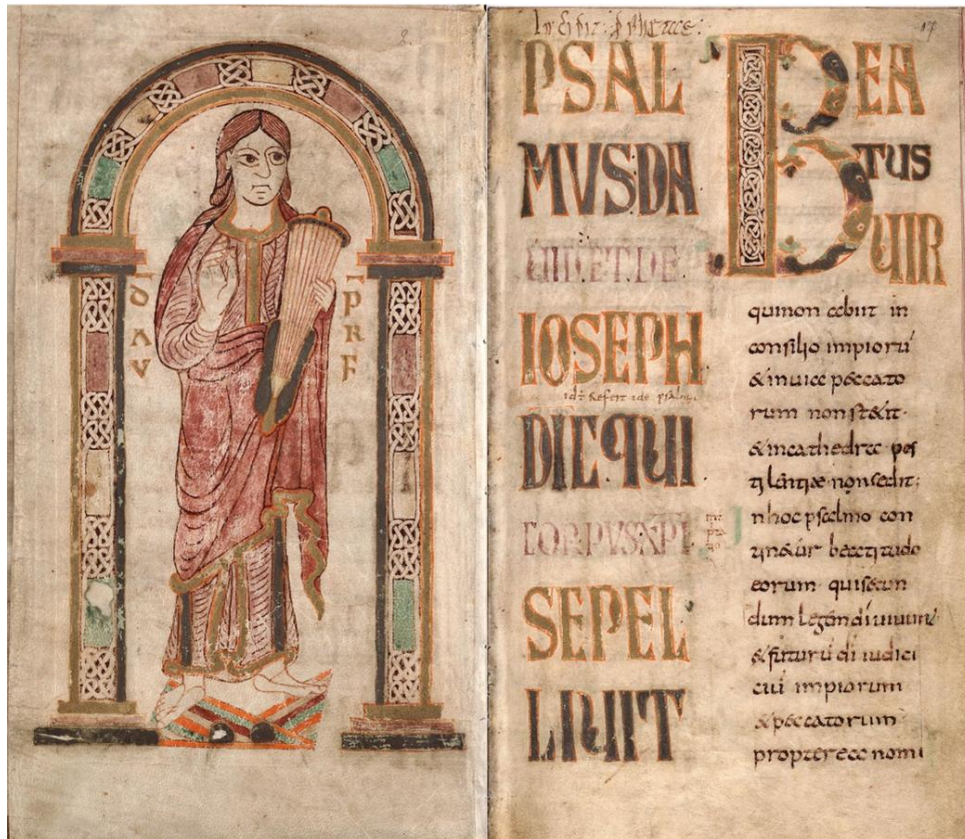 DAV
PRF
PSAL
MVSDA
UID.ET.DE
IOSEPH
DIEQUI
CORPUSXPI
SEPEL
LIUIT
BEA
TUS
UIR
quinon abiit in
consilio impiorū
& inuia peccato
rum non st&it·
& incathedra pes
tilentiae non sedit;
nhoc psalmo con
tin&ur beatitudo
eorum quisecun
dum legēm dī uiuunt
& futurū dī iudici
cui impiorum
& peccatorum
propterea nomi